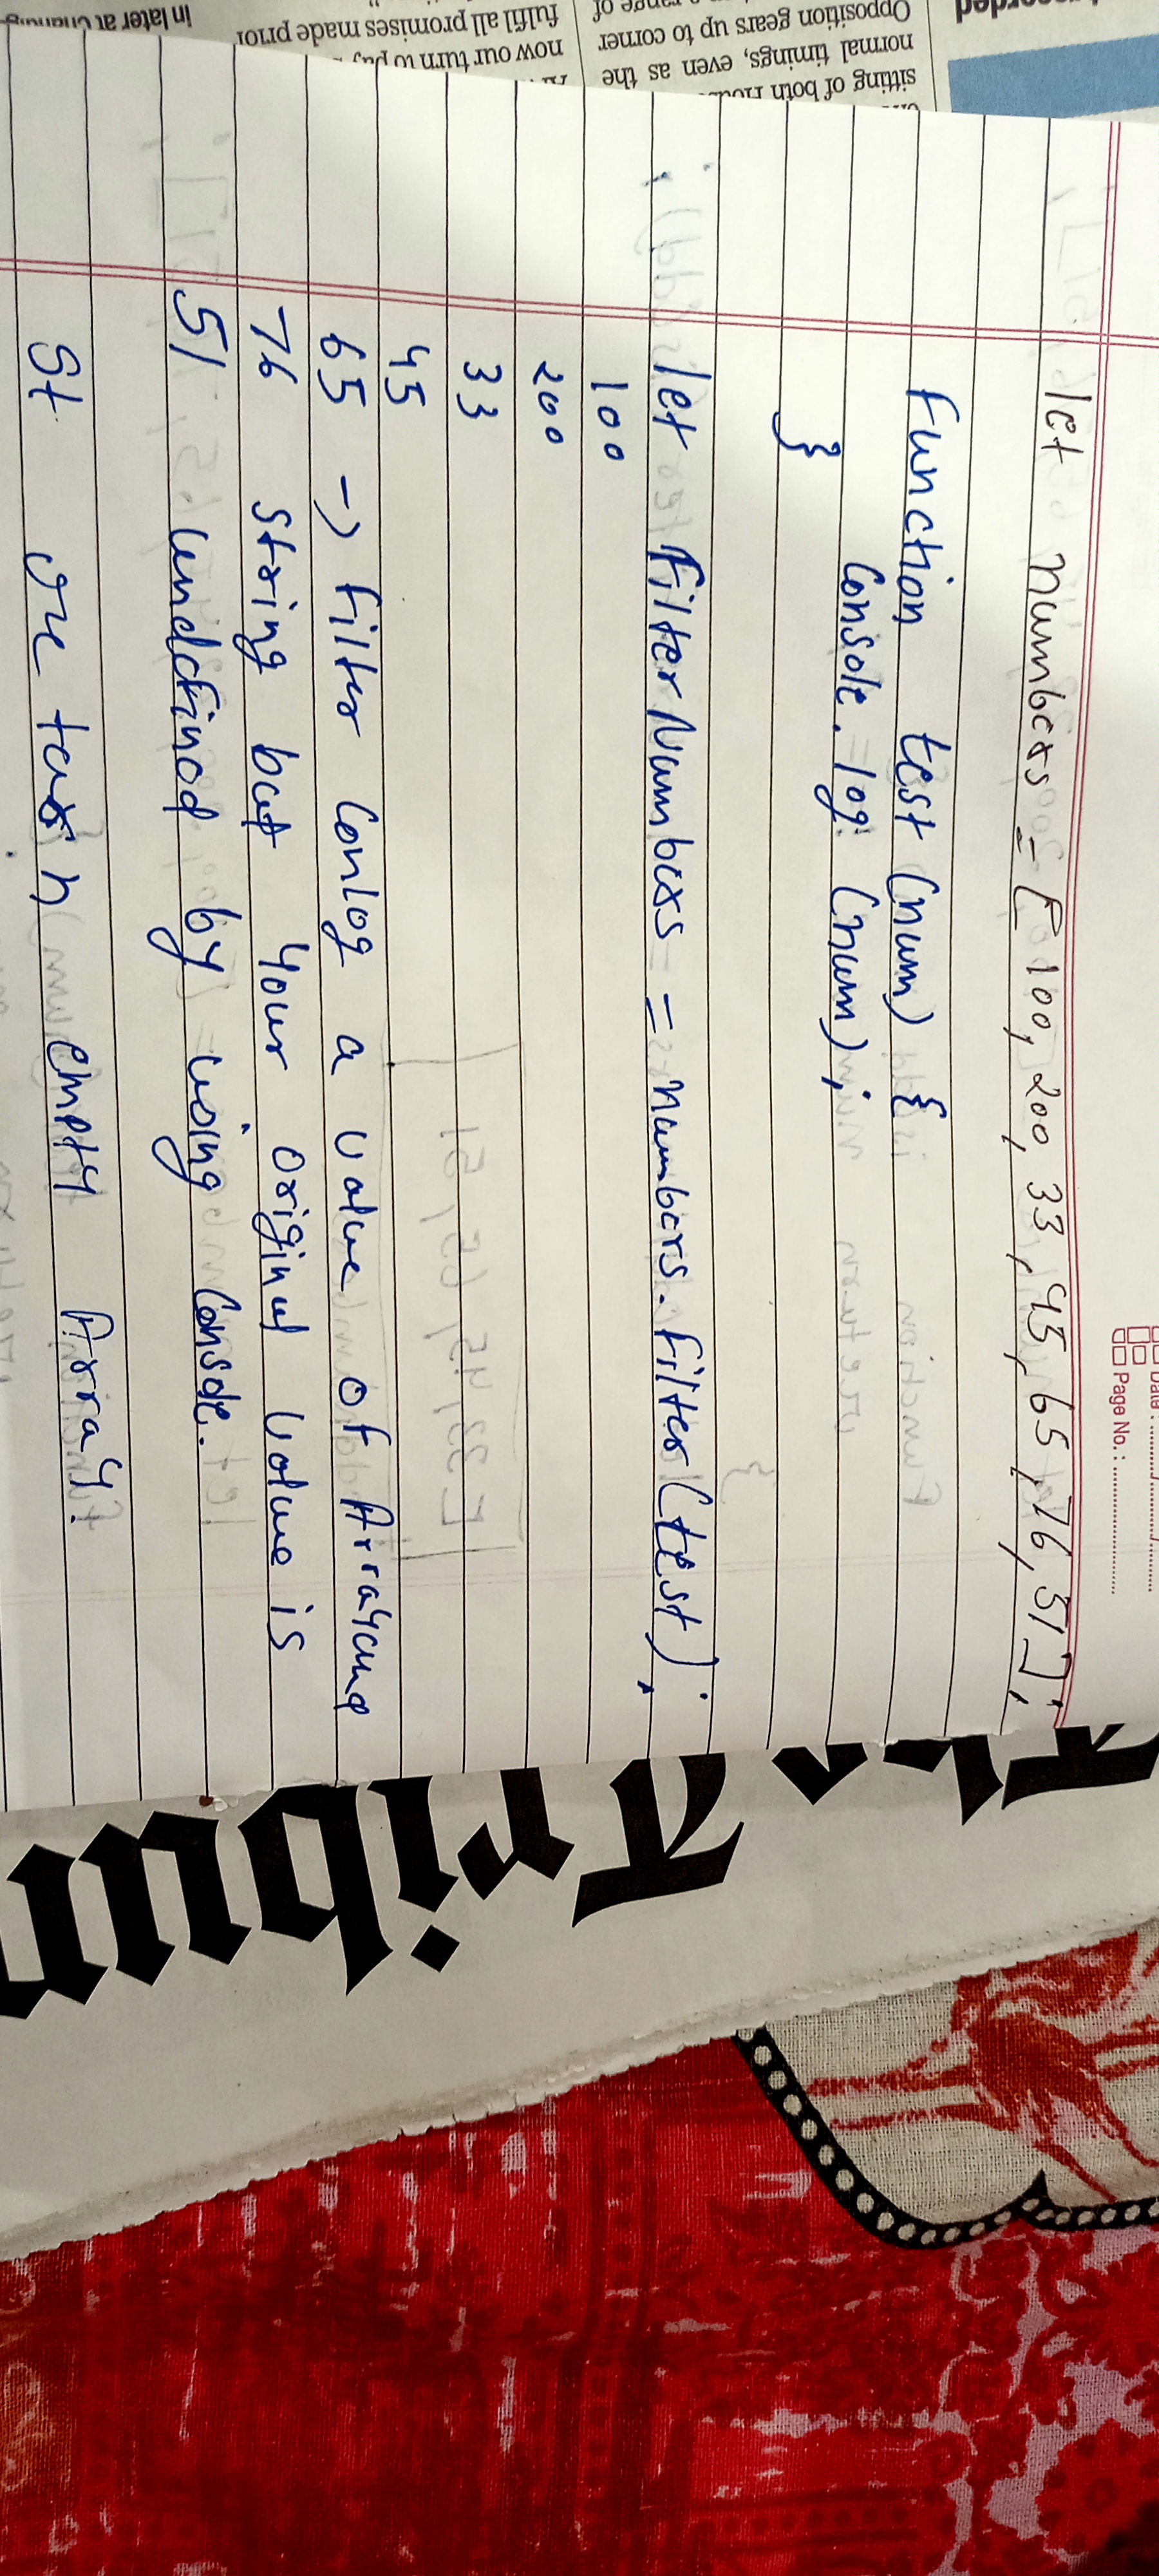 Date : ......./......./.......
Page No. : ........................
let numbers = [ 100, 200, 33, 45, 65, 76, 51];
Function test (num) {
Console. log: (num);
}
let FilterNumbers = numbers. Filter (test);
100
200
33
45
65 -> Filter Conlog a value of Array and
76 string but your original value is
51 undefined by using Console.
St return empty Array.
sitting of both
normal timings, even as the
Opposition gears up to corner
range of
now our turn to
fulfil all promises made prior
in later
The Tribun